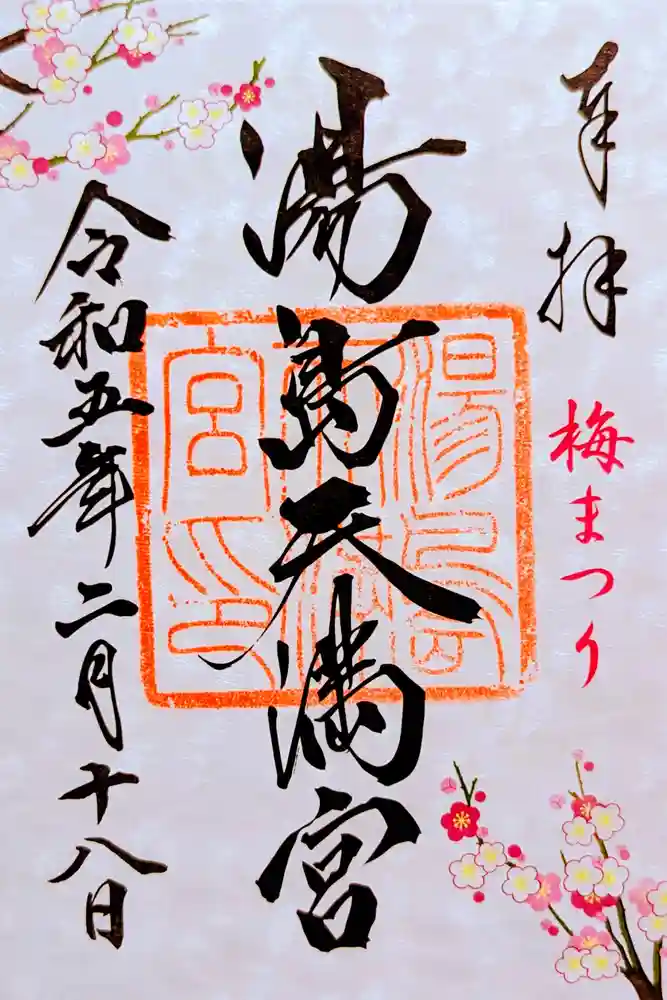 奉拝
梅まつり
湯島天満宮
令和五年二月十八日
湯島
天満
宮印